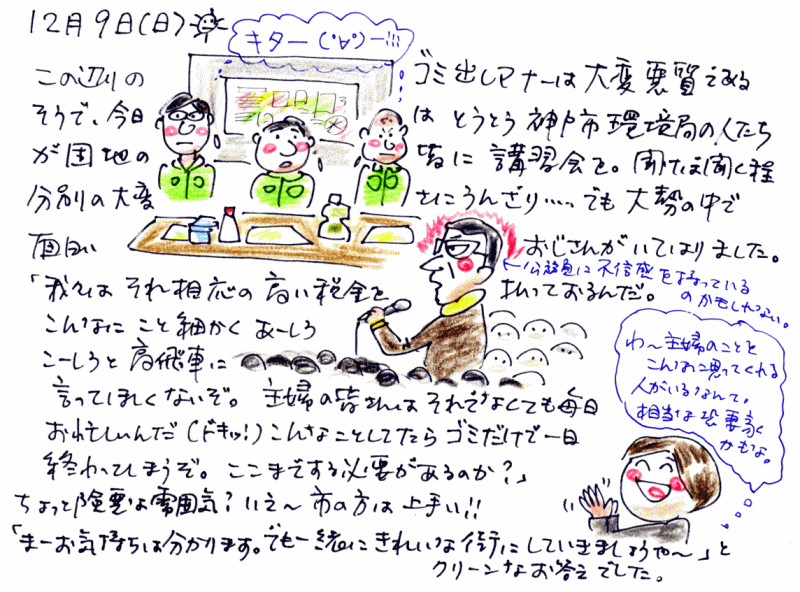 12月9日(日)
キター(゚∀゚)ー!!!
この辺りの ゴミ出しマナーは 大変悪質である
そうで、今日 は とうとう 神戸市 環境局の人たち
が団地の 皆に 講習会を。聞けば聞く程
分別の大変 さにうんざり‥‥でも 大勢の中で
面白い おじさんがいてはりました。
←公務員に不信感をもっている
のかもしれない。
「我々は それ相応の 高い税金を 払っておるんだ。
こんなに こと細かく あーしろ
こーしろと 高飛車に
言ってほしくないぞ。主婦の皆さんは それでなくても毎日
お忙しいんだ(ドキッ!)こんなことしてたら ゴミだけで一日
終わってしまうぞ。ここまでする必要があるのか?」
わ〜主婦のことを
こんなに思ってくれる
人がいるなんて。
相当な恐妻家
かもよ。
ちょっと険悪な雰囲気?いえ〜市の方は上手い!!
「まーお気持ちは分かります。でも一緒にきれいな街にしていきましょうや〜」と
クリーンなお答えでした。